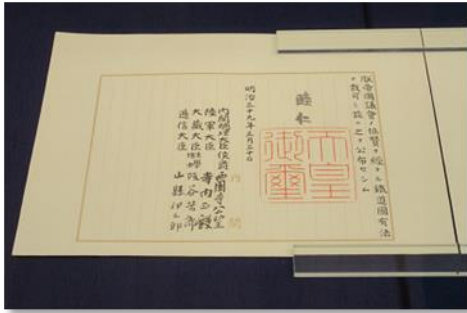 朕帝國議會ノ協贊ヲ經タル鐵道國有法
ヲ裁可シ茲ニ之ヲ公布セシム
睦仁
天皇御璽
明治三十九年三月三十日
内閣總理大臣侯爵西園寺公望
陸軍大臣 寺内正毅
大藏大臣 阪谷芳郎
遞信大臣 山縣伊三郎
内閣